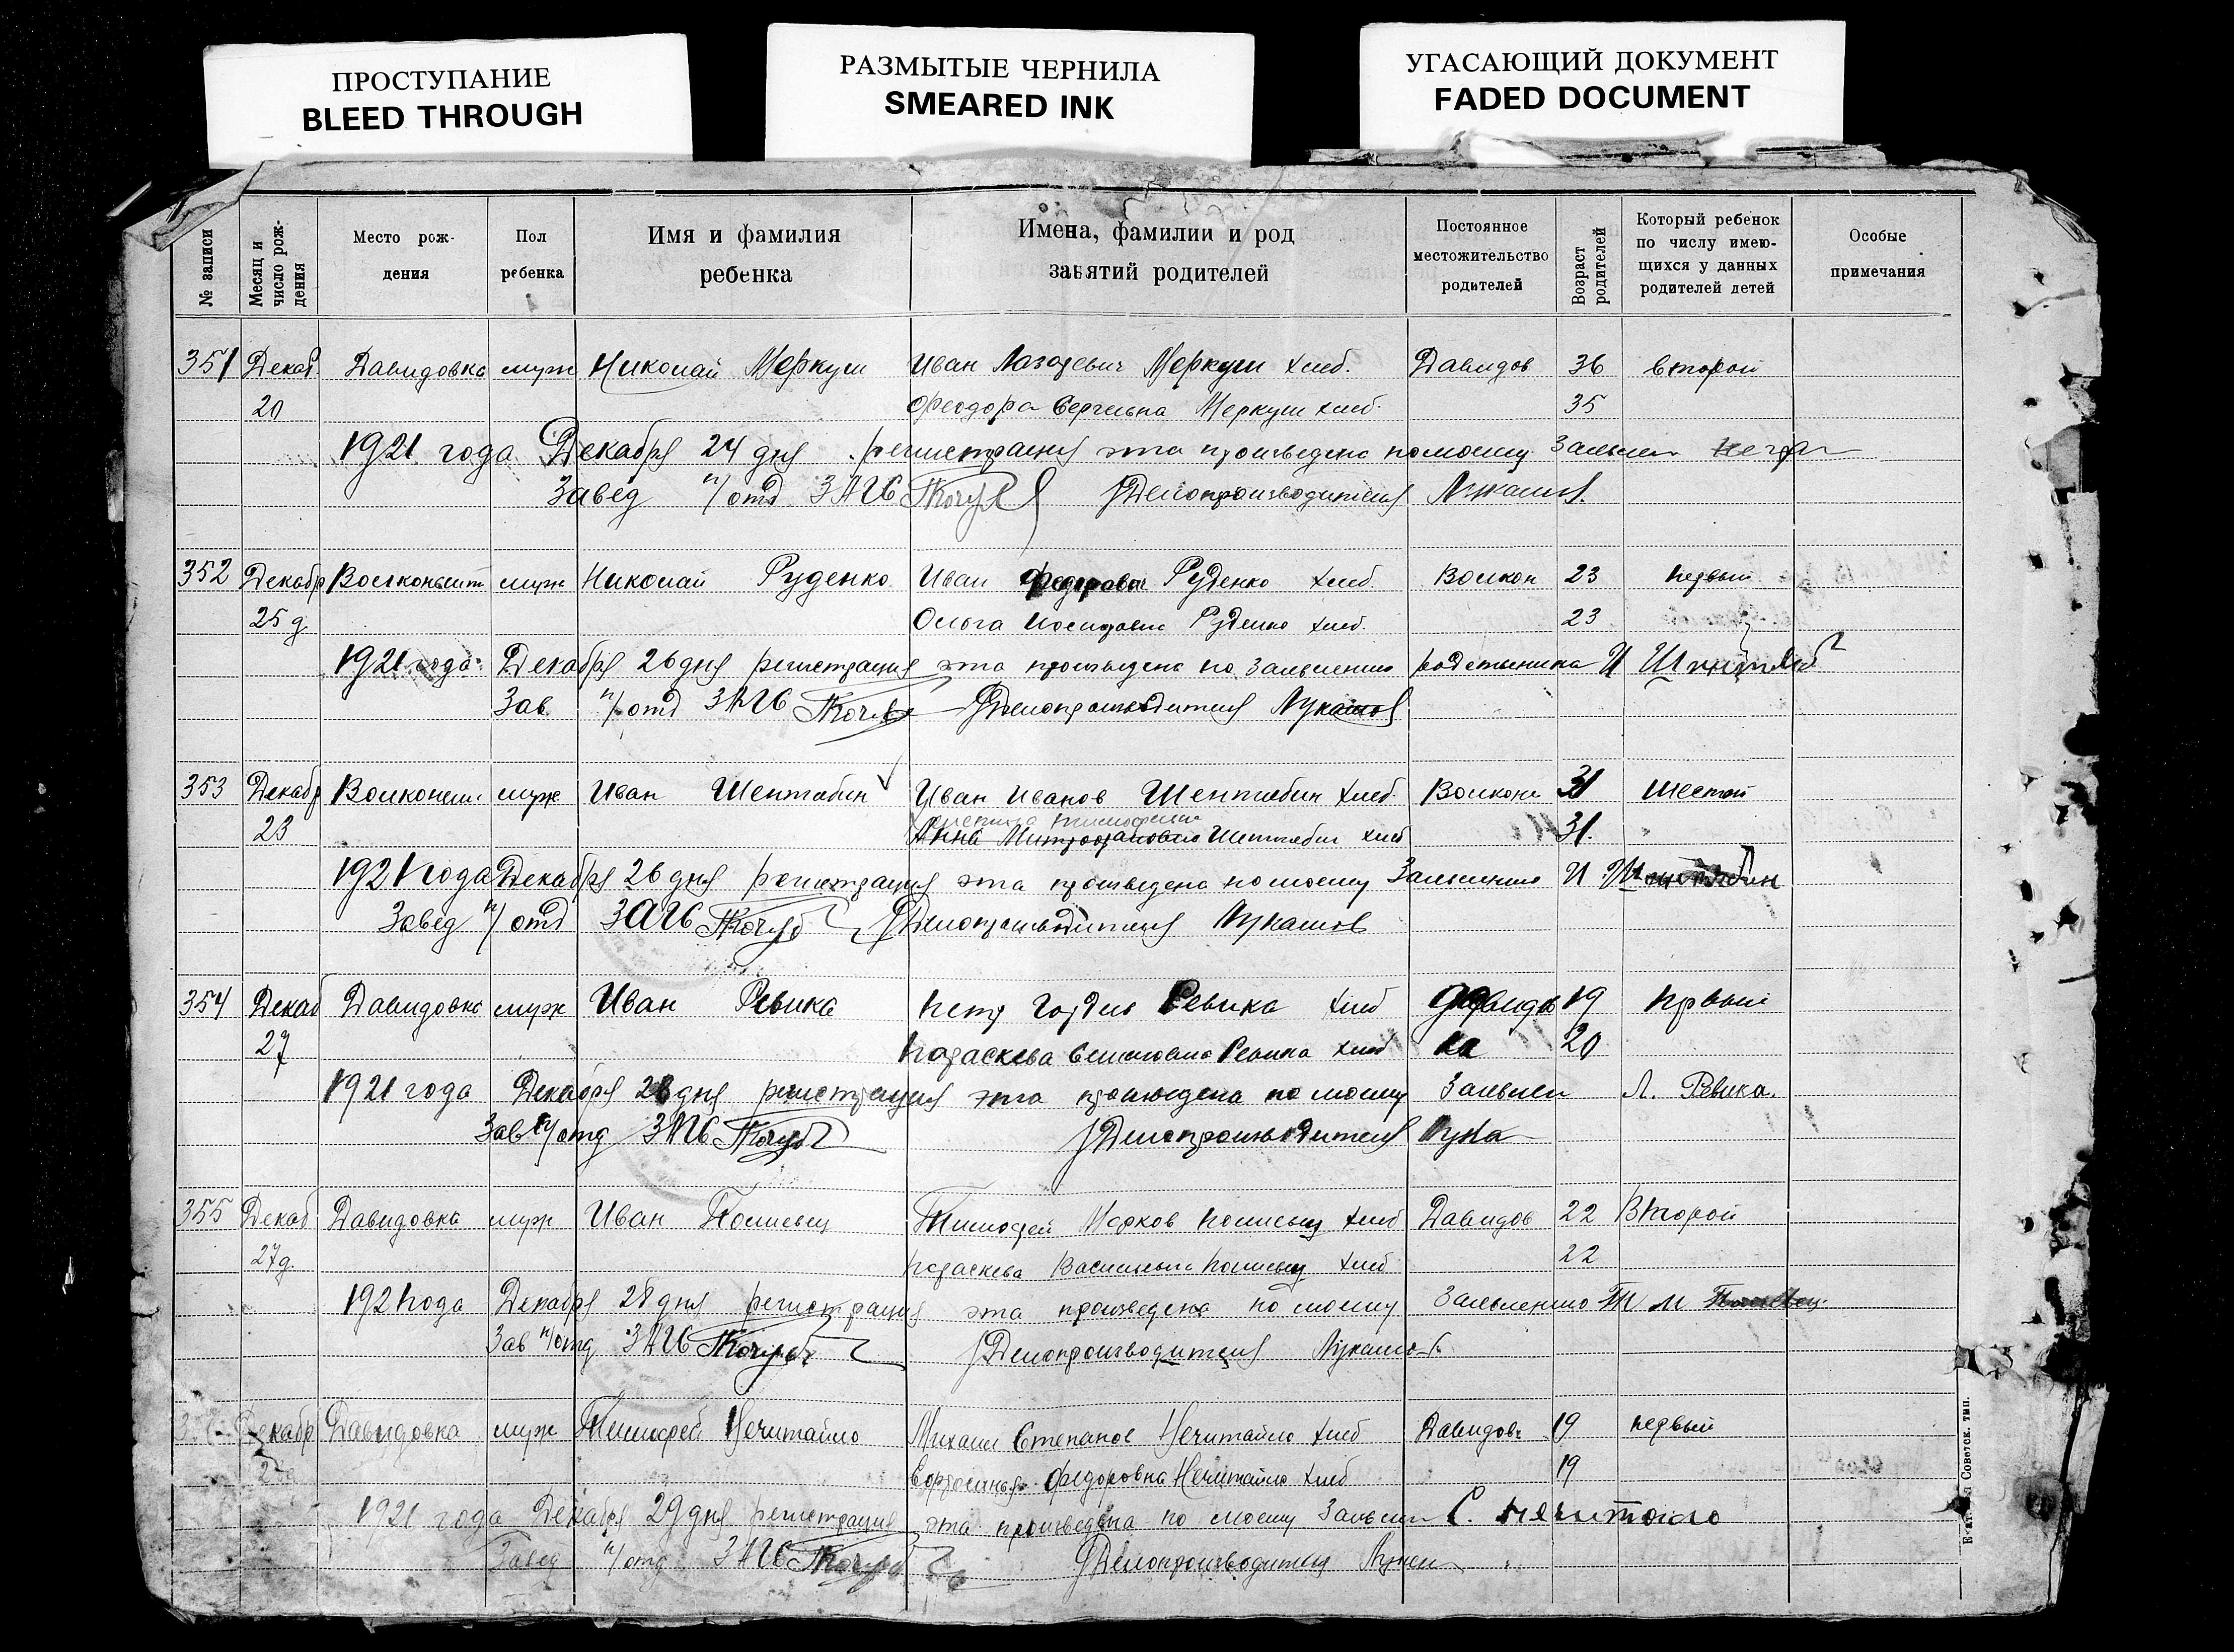 ПРОСТУПАНИЕ
BLEED THROUGH
РАЗМЫТЫЕ ЧЕРНИЛА
SMEARED INK
УГАСАЮЩИЙ ДОКУМЕНТ
FADED DOCUMENT
№ записи
Месяц и число рождения
Место рож-
дения
Пол
ребенка
Имя и фамилия
ребенка
Имена, фамилии и род
занятий родителей
Постоянное
местожительство
родителей
Возраст
родителей
Который ребенок
по числу имею-
щихся у данных
родителей детей
Особые
примечания
351 Декаб. Давидовка муж Николай Меркуш Иван Меркуш хлеб. Давидов 36 второй
20 Феодора Сергеевна Меркуш хлеб. 35
1921 года Декабря 24 дня регистрация эта произведена по моему Заявлен
Завед п/отд ЗАГС Делопроизводитель Лукашов
352 Декабр муж Николай Руденко Иван Федоров Руденко хлеб. Волкон 23 первый
25 д Ольга Руденко хлеб. 23
1921 года Декабря 26 дня регистрация эта произведена по Заявлению родственника И
Зав. п/отд ЗАГС Делопроизводитель Лукашов
353 Декабр муж Иван Шептебин Иван Иванов Шептебин хлеб 31 шестой
23 Анна Митрофановна Шептебин хлеб 31.
1921 года Декабря 26 дня регистрация эта произведена по моему Заявлению И
Завед п/отд ЗАГС Делопроизводитель Лукашов
354 Декаб Давидовка муж Иван Ревика Петр Ревика хлеб Давидов 19 Првый
27 Параскева Ревика хлеб ка 20
1921 года Декабря 28 дня регистрация эта произведена по моему Заявлен Ревика.
Зав п/отд ЗАГС Делопроизводитель Лука
355 Декаб Давидовка муж Иван Тимофей Марков хлеб Давидов 22 Второй
27 д. Параскева хлеб 22
1921 года Декабря 28 дня регистрация эта произведена по моему Заявлению Т М
Зав п/отд ЗАГС Делопроизводитель Лукашов
Декабр Давидовка муж Тимофей Нечитайло Михаил Степанов Нечитайло хлеб Давидов 19 первый
Федоровна Нечитайло хлеб 19
1921 года Декабря 29 дня регистрация эта произведена по моему Заявлен С. Нечитайло
Завед п/отд ЗАГС Делопроизводитель